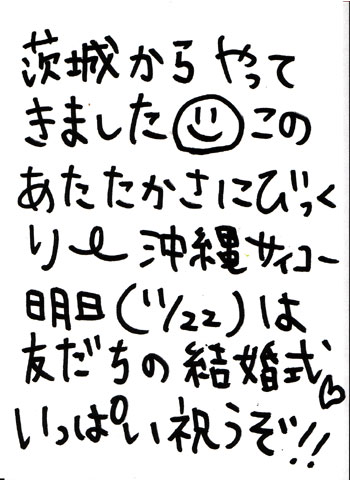 茨城からやって
きました☺この
あたたかさにびっく
りー沖縄サイコー
明日(11/22)は
友だちの結婚式♡
いっぱい祝うぞ!!